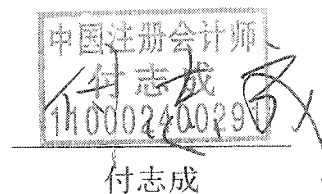 中国注册会计师
付志成
110002400291
付志成